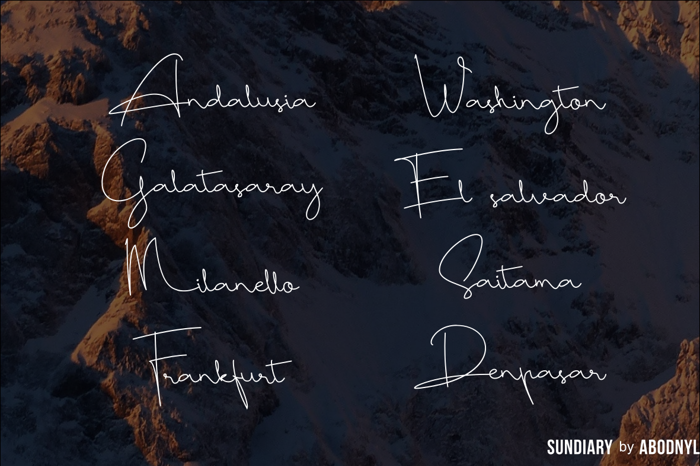 Andalusia
Washington
Galatasaray
El salvador
Milanello
Saitama
Frankfurt
Denpasar
SUNDIARY by ABODNYL